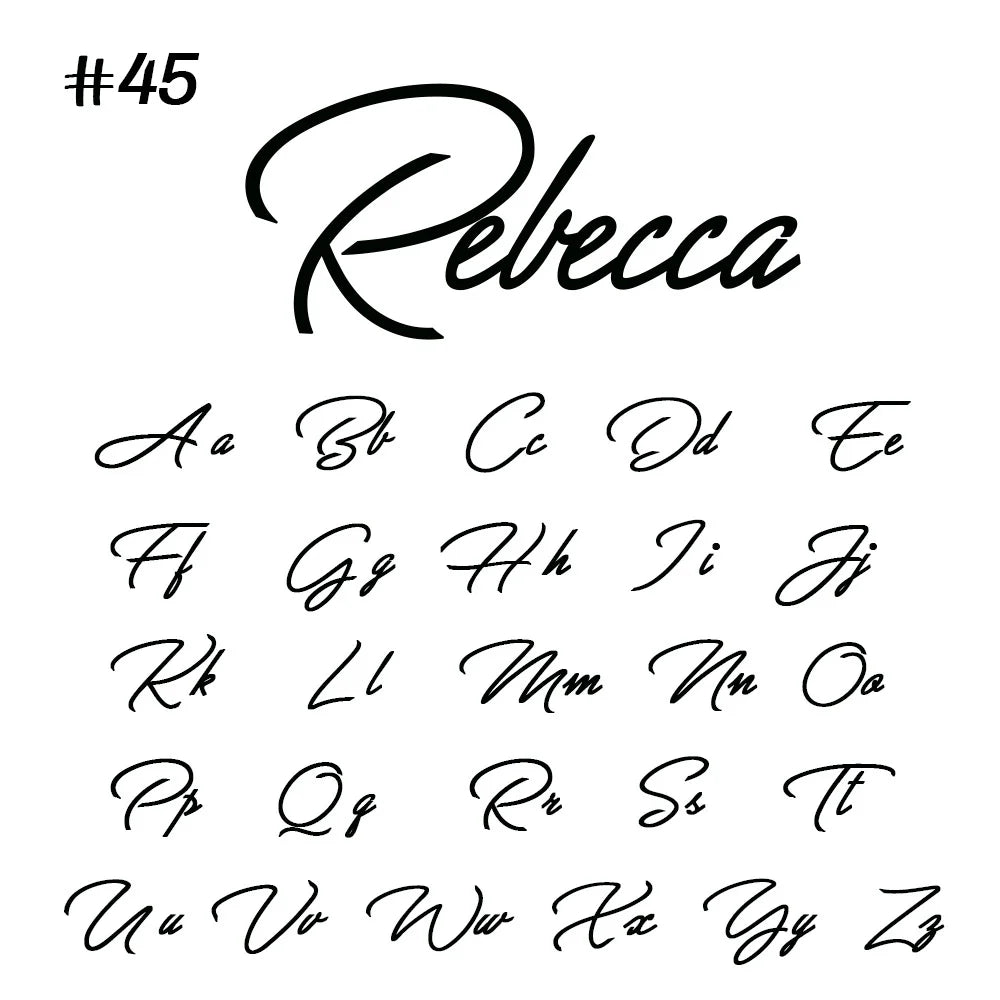 #45
Rebecca
Aa Bb Cc Dd Ee
Ff Gg Hh Ii Jj
Kk Ll Mm Nn Oo
Pp Qq Rr Ss Tt
Uu Vv Ww Xx Yy Zz